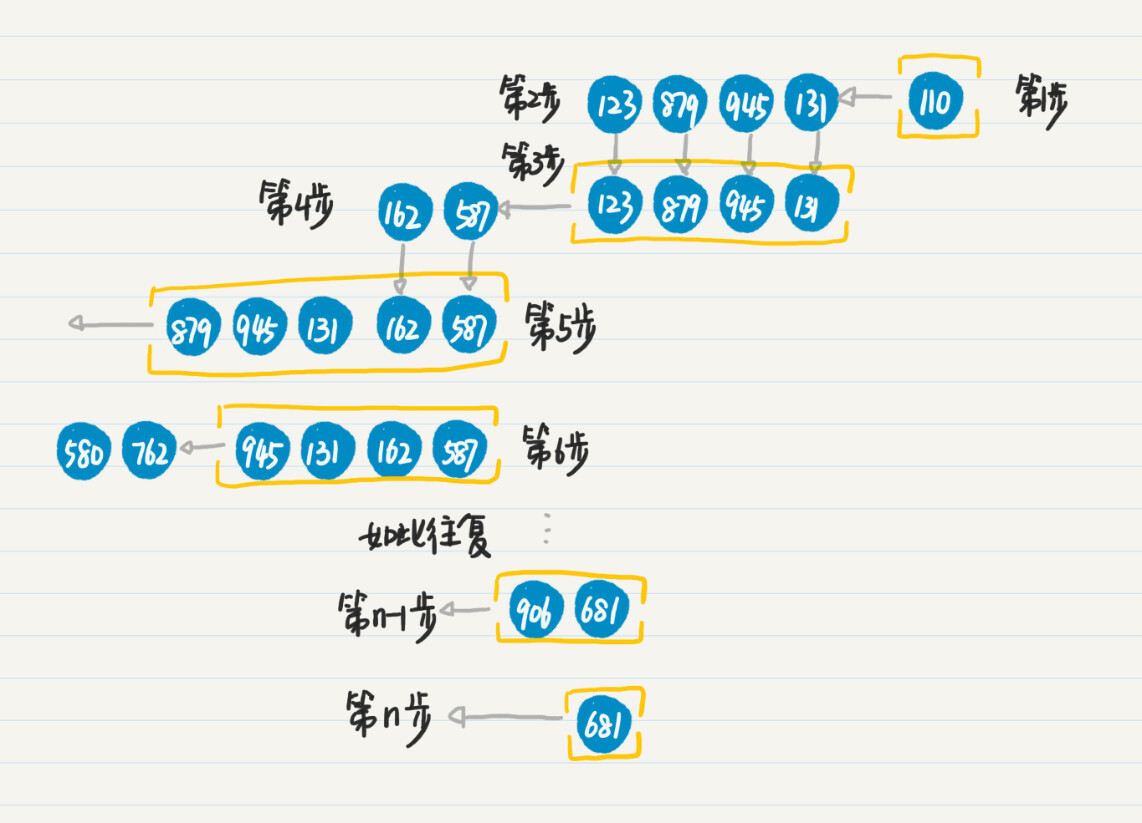 第2步 123 879 945 131 110 第1步
第3步 123 879 945 131
第4步 162 587
879 945 131 162 587 第5步
580 762 945 131 162 587 第6步
如此往复
第n-1步 906 681
第n步 681